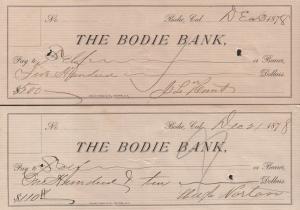 No. Bodie, Cal. Dec 3 1878
THE BODIE BANK,
Pay to Self or Bearer,
Five Hundred Dollars
$500
No. Bodie, Cal. Dec 21 1878
THE BODIE BANK,
Pay to Self or Bearer,
One Hundred & ten Dollars
$110 Hugh Norton